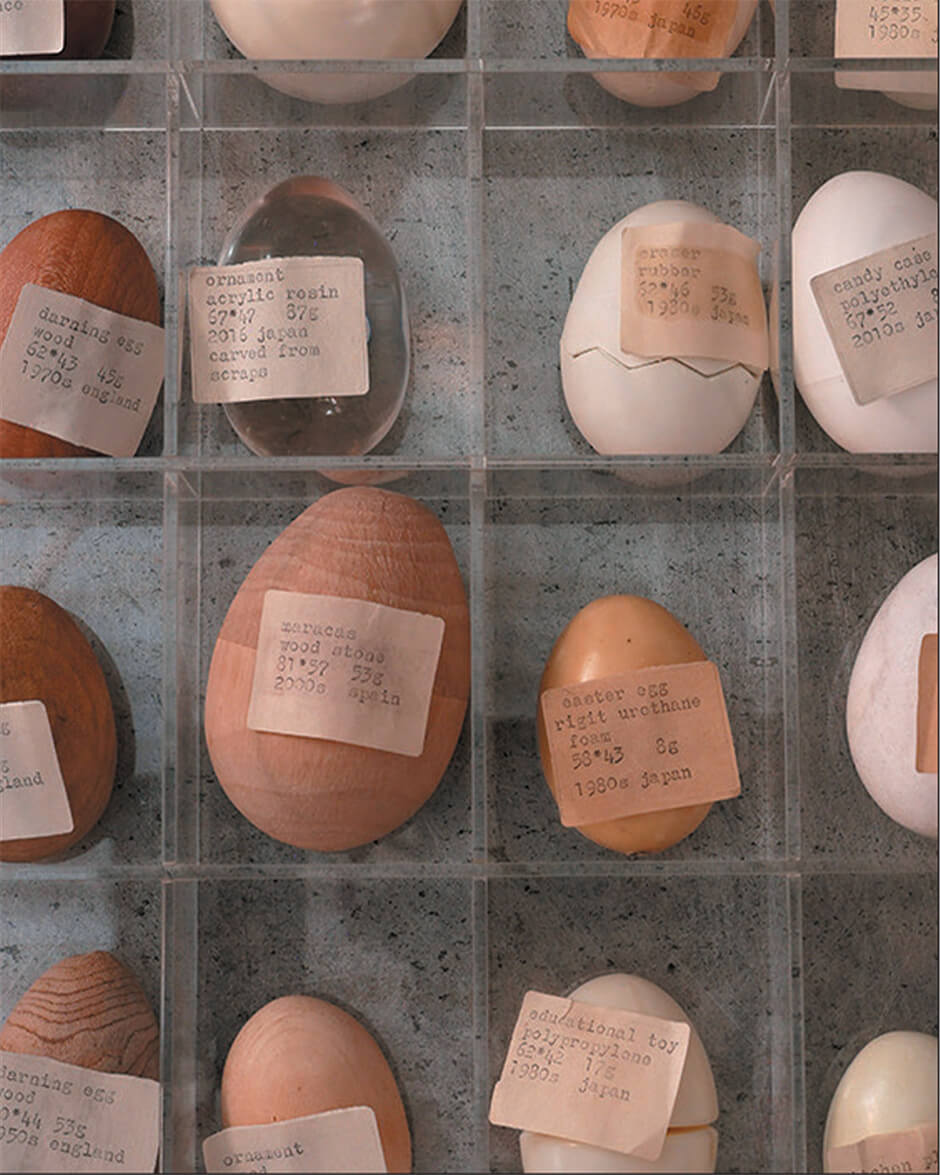 45g
1970s japan
45*35
1980s j
darning egg
wood
62*43 45g
1970s england
ornament
acrylic resin
67*47 87g
2016 japan
carved from
scraps
eraser
rubber
62*46 53g
1980s japan
candy case
polyethyle
67*52 8
2010s jap
g
g
gland
maracas
wood stone
81*57 53g
2000s spain
easter egg
rigit urothane
foam
58*43 8g
1980s japan
darning egg
wood
0*44 53g
950s england
ornament
educational toy
polypropylene
62*42 17g
1980s japan